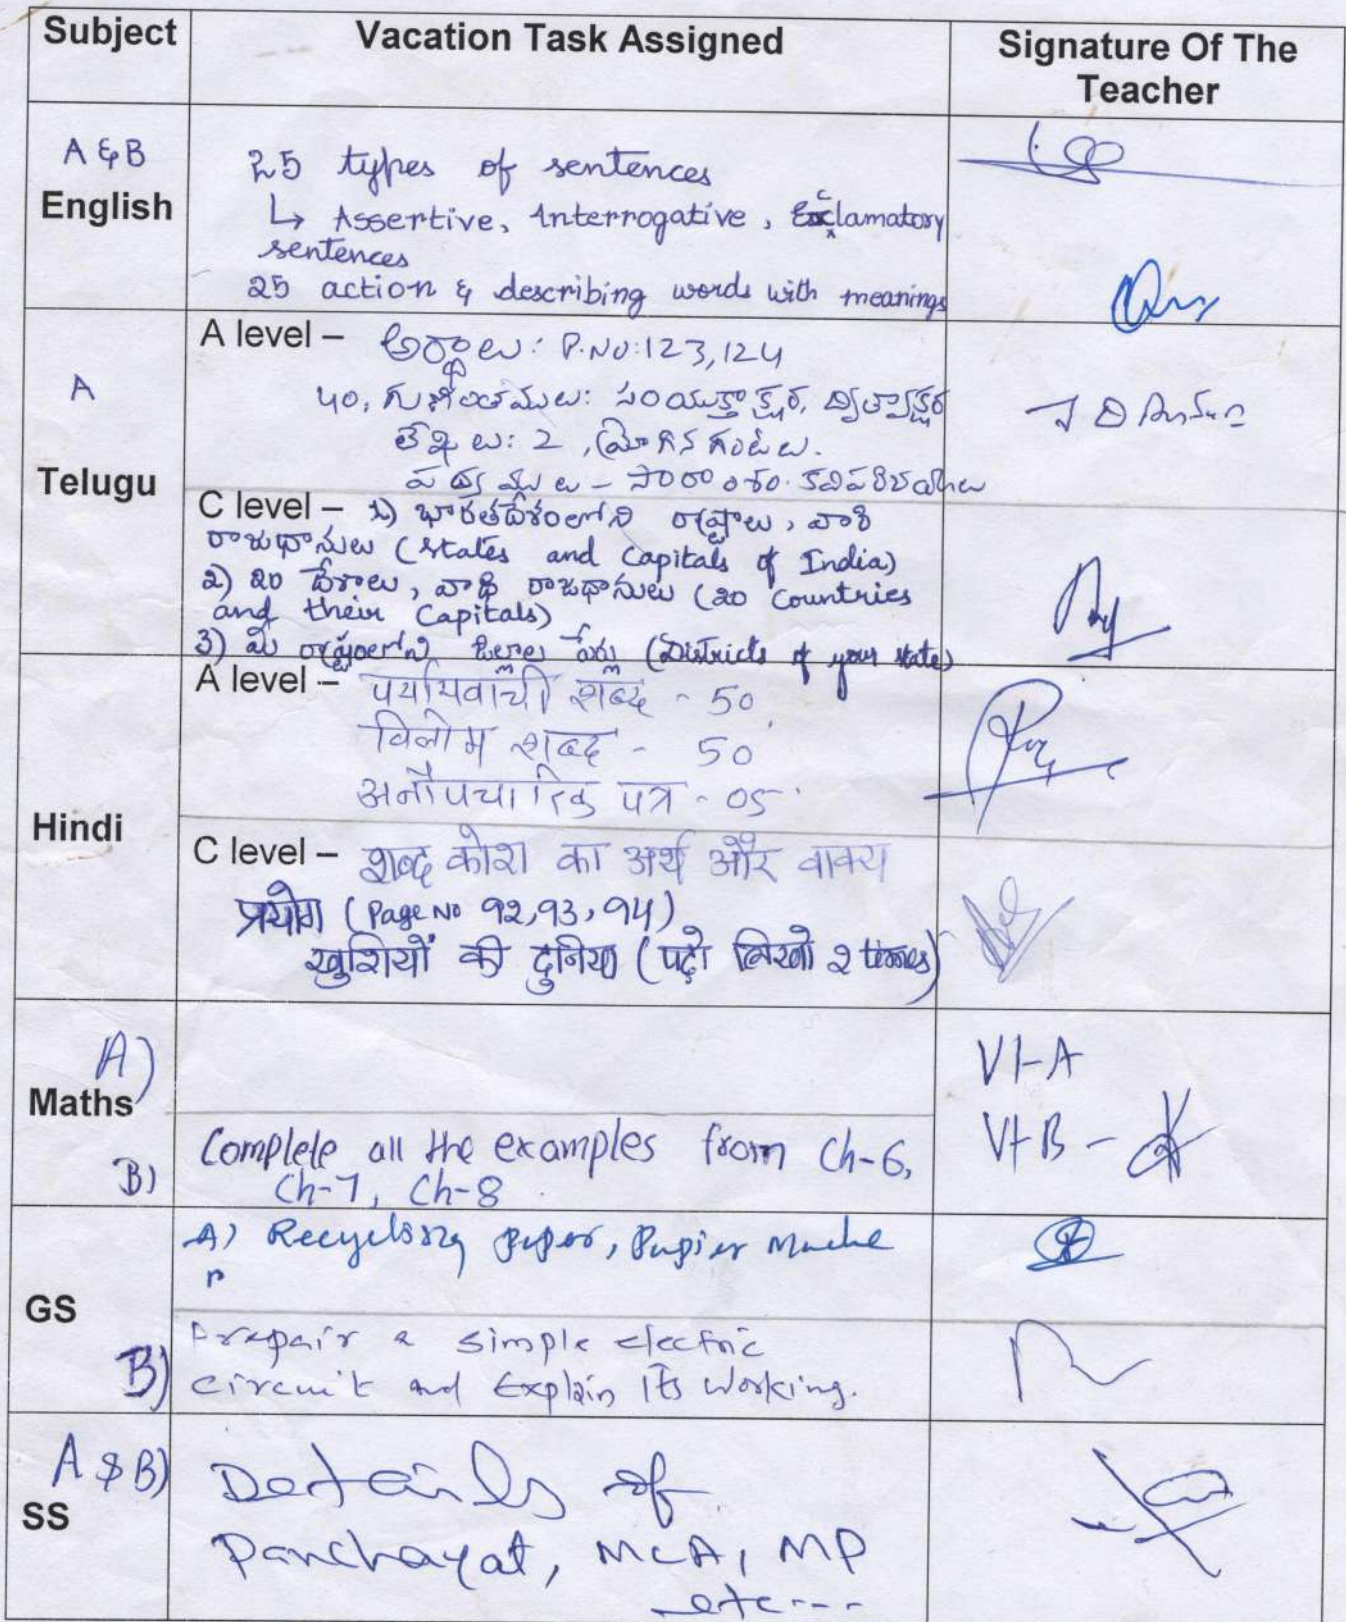 Subject Vacation Task Assigned Signature Of The
Teacher
A & B
English
25 types of sentences
↳ Assertive, Interrogative, Exclamatory
sentences
25 action & describing words with meanings
A
Telugu
A level – అర్థాలు: P.NO:123,124
40, గుణింతములు: సంయుక్తాక్షర, ద్విత్వాక్షర
లేఖలు: 2, మ్రోగిన గంటలు.
పద్యములు – సారాంశం. కవిపరిచయాలు
C level – 1) భారతదేశంలోని రాష్ట్రాలు, వాటి
రాజధానులు (States and Capitals of India)
2) 20 దేశాలు, వాటి రాజధానులు (20 Countries
and their Capitals)
3) మీ రాష్ట్రంలోని జిల్లాల పేర్లు (Districts of your state)
Hindi
A level – पर्यायवाची शब्द - 50
विलोम शब्द - 50
अनौपचारिक पत्र - 05
C level – शब्द कोश का अर्थ और वाक्य
प्रयोग (Page No 92,93,94)
खुशियों की दुनिया (पढ़ो लिखो 2 times)
A)
Maths
B)
Complete all the examples from Ch-6,
Ch-7, Ch-8.
VI-A
VI-B -
GS
A) Recycling Paper, Papier Mache
B)
Prepair a simple electric
circuit and Explain Its working.
A & B)
SS
Details of
Panchayat, MLA, MP
etc---